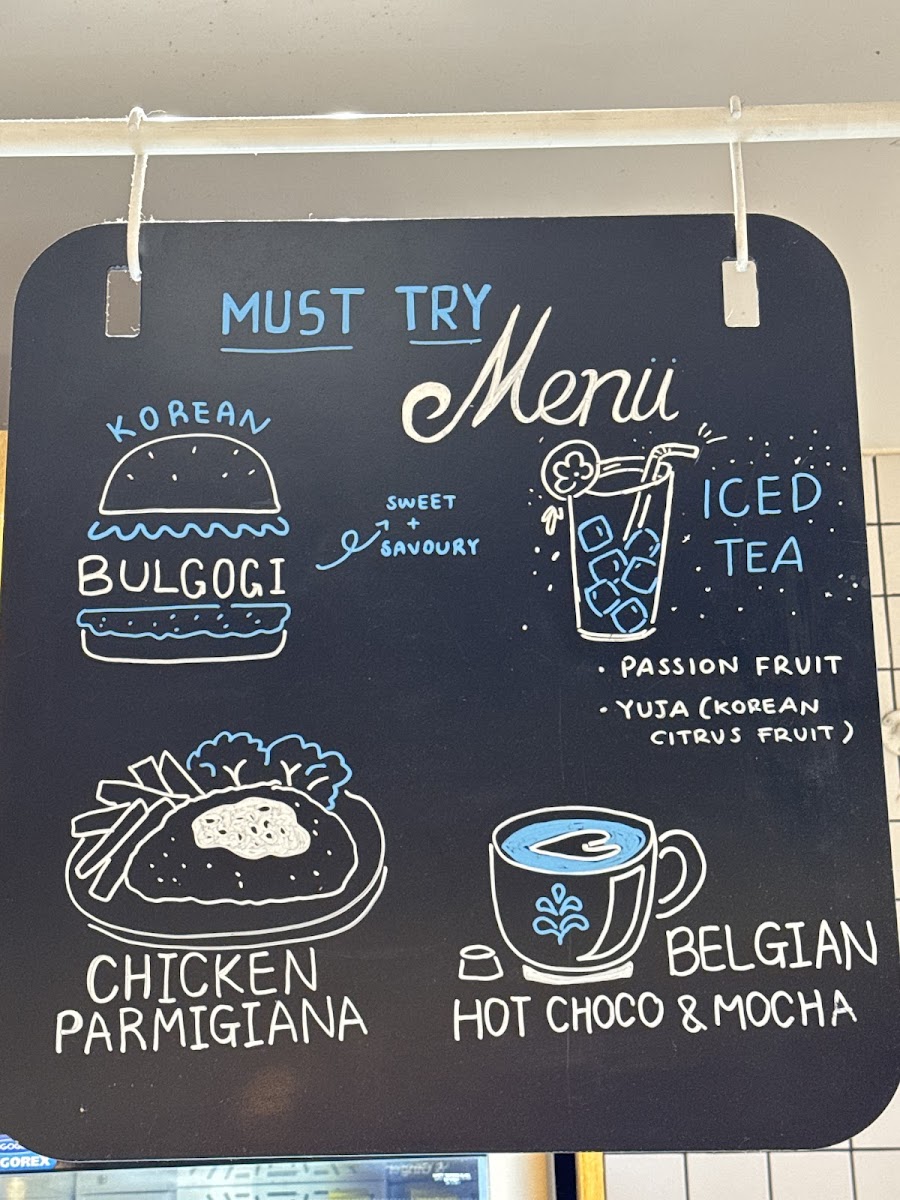 MUST TRY
Menü
KOREAN
BULGOGI
SWEET
+
SAVOURY
ICED
TEA
• PASSION FRUIT
• YUJA (KOREAN
CITRUS FRUIT)
CHICKEN
PARMIGIANA
BELGIAN
HOT CHOCO & MOCHA
GOREX